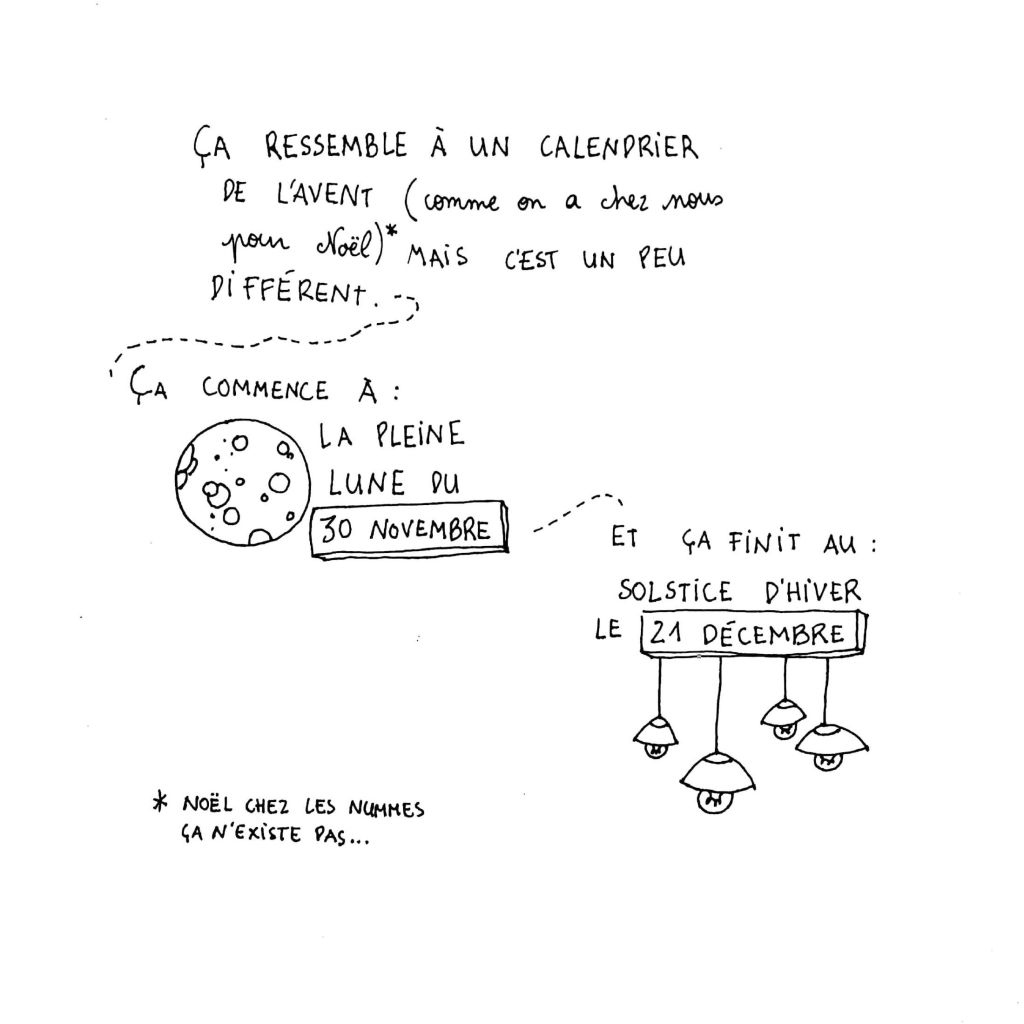 ÇA RESSEMBLE À UN CALENDRIER
DE L'AVENT (comme on a chez nous
pour Noël)* MAIS C'EST UN PEU
DIFFÉRENT.
ÇA COMMENCE À :
LA PLEINE
LUNE DU
30 NOVEMBRE
ET ÇA FINIT AU :
SOLSTICE D'HIVER
LE 21 DÉCEMBRE
* NOËL CHEZ LES NUMMES
ÇA N'EXISTE PAS...